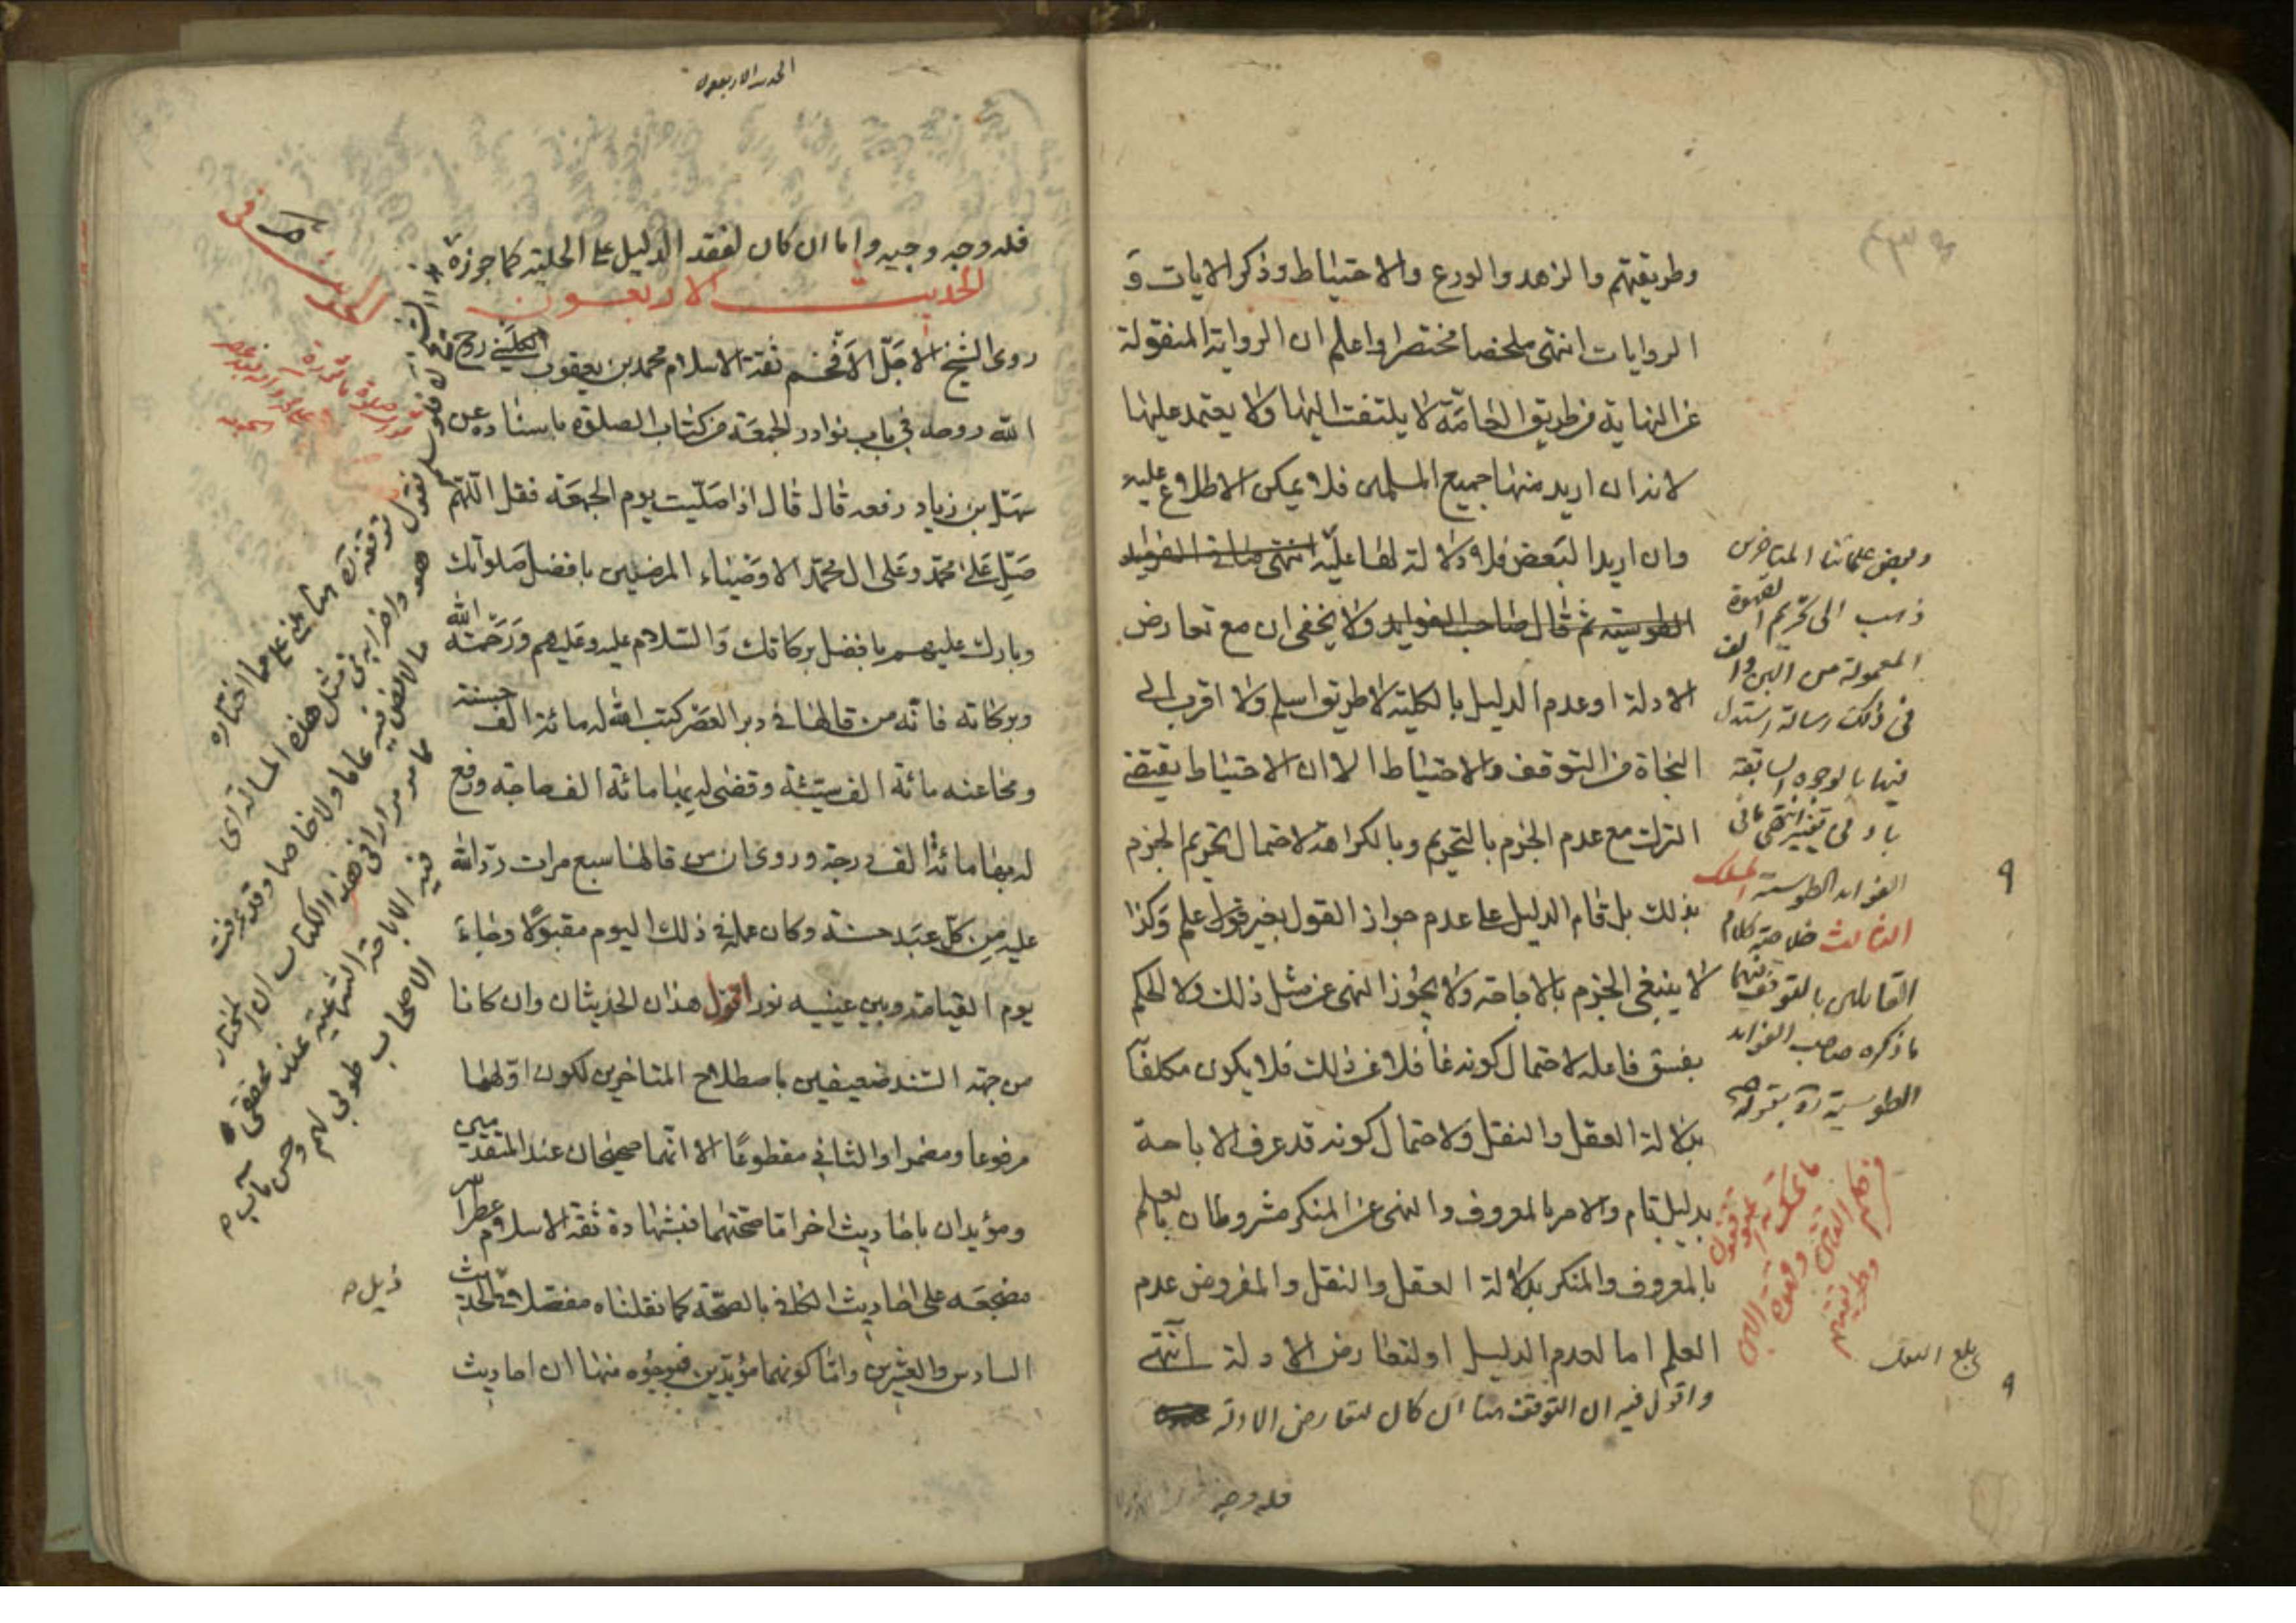 وطريقتهم والزهد والورع والاحتياط وذكر الايات و
الروايات انتهى ملخصا مختصرا واعلم ان الرواية المنقولة
عن النهاية من طريق العامّة لا يلتفت اليها ولا يعتمد عليها
لانه ان اريد منها جميع المسلمين فلا يمكن الاطلاع عليه
وان اريد البعض فلا دلالة لها عليه انتهى ما في الفوايد
الطوسية ثم قال صاحب الفوايد ولا يخفى ان مع تعارض
الادلة او عدم الدليل بالكلية لا طريق اسلم ولا اقرب الى
النجاة من التوقف والاحتياط الا ان الاحتياط يقتضي
الترك مع عدم الجزم بالتحريم وبالكراهة لاحتمال تحريم الجزم
بذلك بل قام الدليل على عدم جواز القول بغير علم وكذا
لا ينبغي الجزم بالاباحة ولا يجوز النهي عن مثل ذلك ولا الحكم
بفسق فاعله لاحتمال كونه غافلا عن ذلك فلا يكون مكلفا
بدلالة العقل والنقل ولاحتمال كونه قد عرف الاباحة
بدليل تام والامر بالمعروف والنهي عن المنكر مشروطان بالعلم
بالمعروف والمنكر بدلالة العقل والنقل والمفروض عدم
العلم اما لعدم الدليل او لتعارض الادلة انتهى
واقول فيه ان التوقف هنا ان كان لتعارض الادلة
فله وجه
وبعض علمائنا المتاخرين
ذهب الى تحريم القهوة
المعمولة من البن والف
في ذلك رسالة استدل
فيها بالوجوه السابقة
بادنى تغيير انتهى ما في
الفوايد الطوسية المسلك
الثالث خلاصة كلام
القائلين بالتوقف فيها
ما ذكره صاحب الفوايد
الطوسية ره بقوله
بلغ
الحديث الاربعون
فله وجه وجيه واما ان كان لفقد الدليل على الحلية كما جوزه
الحديث الاربعون
روى الشيخ الاجلّ الافخم ثقة الاسلام محمد بن يعقوب الكليني روح
الله روحه في باب نوادر الجمعة من كتاب الصلوة باسناده عن
سهل بن زياد رفعه قال قال اذا صلّيت يوم الجمعة فقل اللّهم
صلّ على محمّد وعلى ال محمّد الاوصياء المرضيين بافضل صلواتك
وبارك عليهم بافضل بركاتك والسّلام عليه وعليهم ورحمة الله
وبركاته فانّه من قالها في دبر العصر كتب الله له مائة الف حسنة
ومحا عنه مائة الف سيّئة وقضى له بها مائة الف حاجة ورفع
له بها مائة الف درجة وروى ان من قالها سبع مرات ردّ الله
عليه من كلّ عبد حسنة وكان عمله في ذلك اليوم مقبولًا وجاءَ
يوم القيامة وبين عينيه نور اقول هذان الحديثان وان كانا
من جهة السّند ضعيفين باصطلاح المتاخرين لكون اولهما
مرفوعا ومضمرا والثاني مقطوعًا الا انّهما صحيحان عند المتقدمين
ومؤيدان باحاديث اخر امّا صحّتهما فبشهادة ثقة الاسلام عطّر الله
مضجعه على احاديث الكافي بالصّحّة كما نقلناه مفصّلا في الحديث
السادس والعشرين وامّا كونهما مؤيّدين فبوجوه منها ان احاديث
في مثل هذه المسالة
مما اختاره
محققي
الاصحاب طوبى لهم وحسن مآب